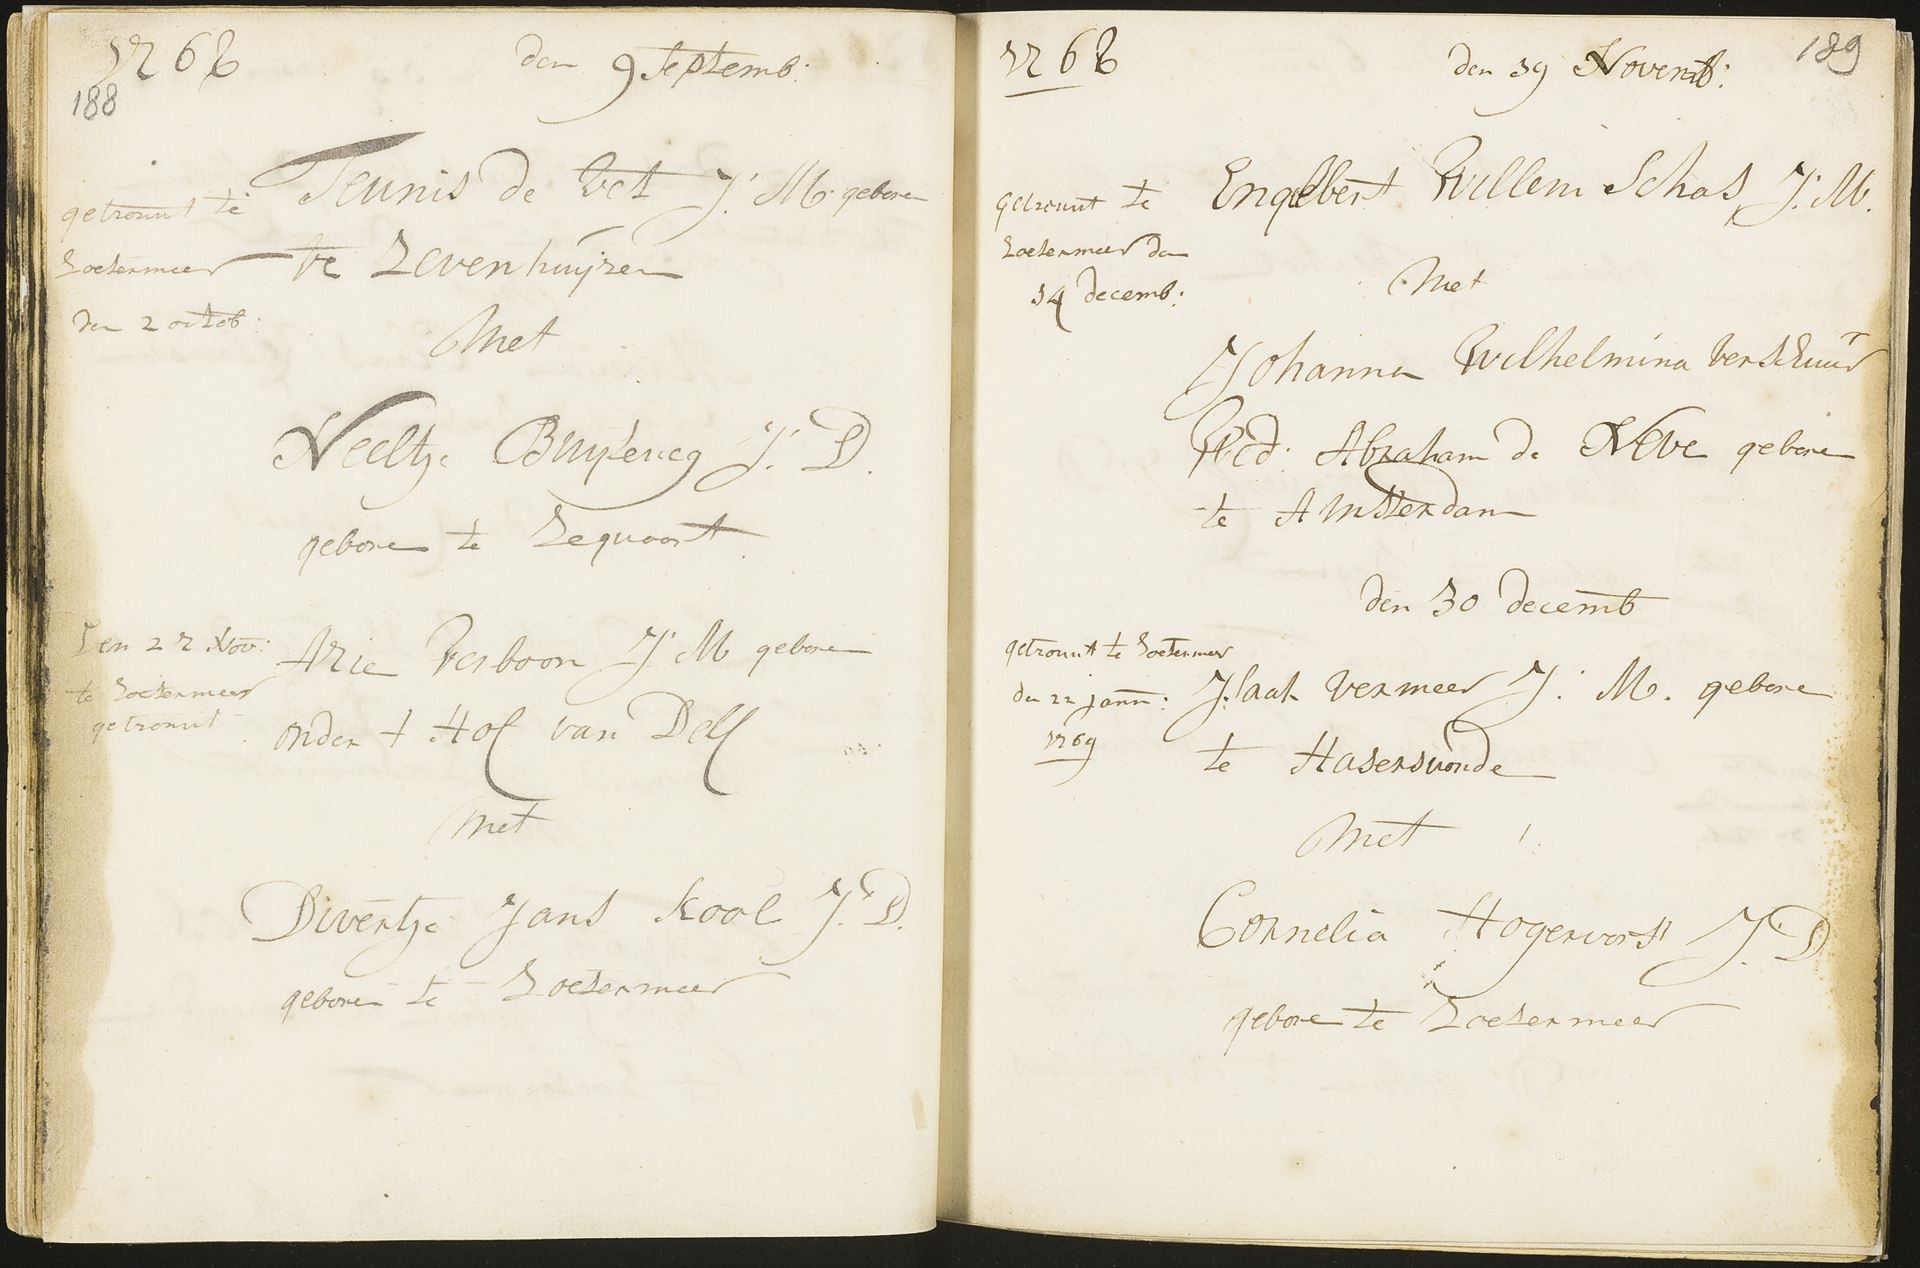 1768
den 9 Septemb:
188
Teunis de Vet J: M: gebore
getrouwt te
te Zevenhuijzen
Zoetermeer
den 2 octob:
Met
Neeltje Buyteweg J: D.
gebore te Zegwaart
Den 27 Nov:
te Zoetermeer
getrouwt
Arie Verboon J: M gebore
onder t Hof van Delf
met
Divertje Jans Kool J: D.
gebore te Zoetermeer
1768
den 19 Novemb:
189
getrouwt te
Zoetermeer den
14 decemb:
Engelbert Willem Schas, J: M.
Met
Johanna Wilhelmina Verschuur
Wed: Abraham de Neve gebore
te Amsterdam
den 30 decemb
getrouwt te Zoetermeer
den 22 jann:
1769
Isaak Vermeer J: M. gebore
te Haserswoude
Met
Cornelia Hogervorst J: D
gebore te Zoetermeer